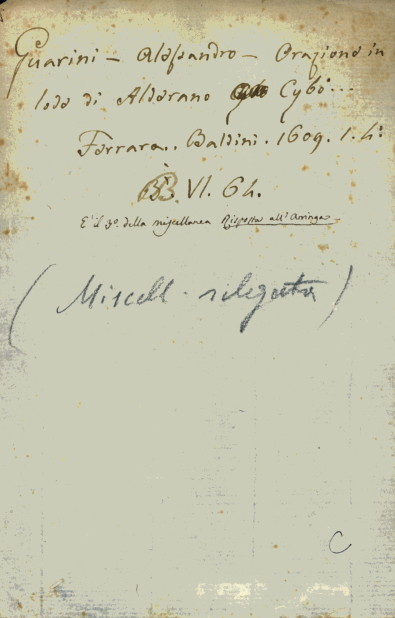 Guarini - Alessandro - Orazione in
lode di Alderano Cybo...
Ferrara.. Baldini. 1609. 1. 4:
BB. VI. 64.
È il 3º. della miscellanea Risposta all'Arringa
(Miscell. slegata)
C